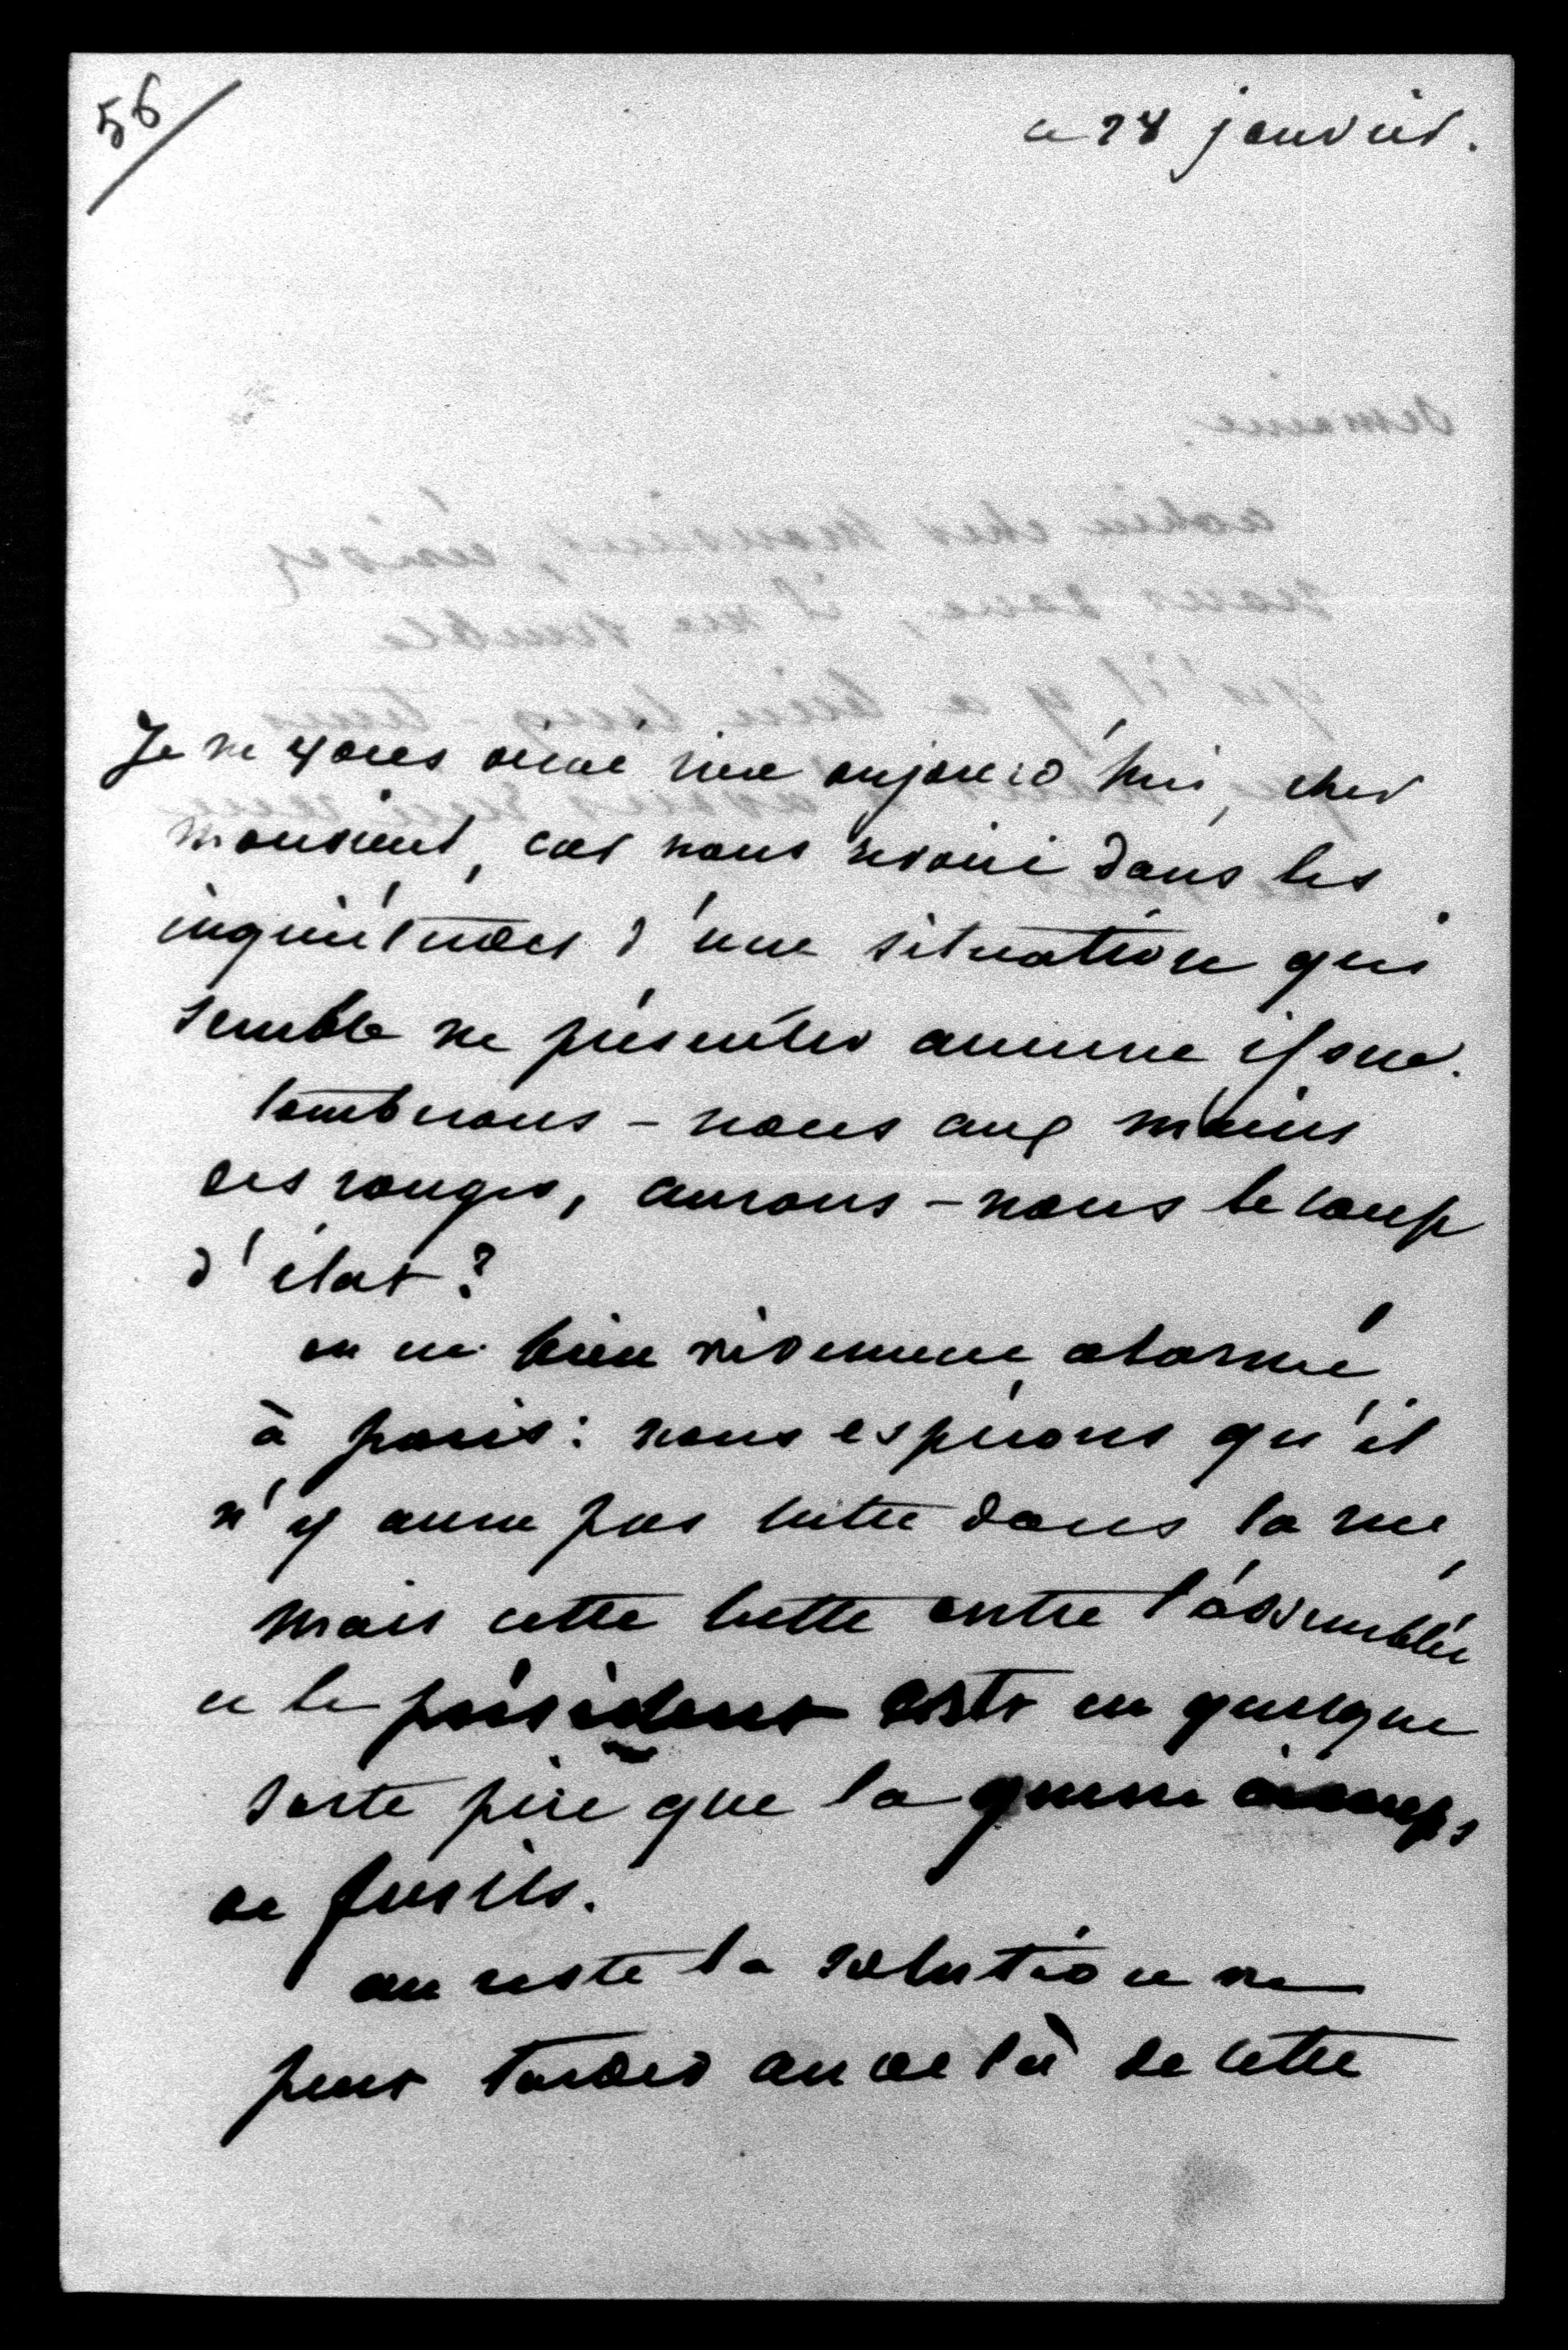 56
ce 28 janvier.
Je ne vous dirai rien aujourd'hui, cher
monsieur, car nous revoici dans les
inquiétudes d'une situation qui
semble ne présenter aucune issue.
tomberons-nous aux mains
des rouges, aurons-nous le coup
d'état?
on est bien vivement alarmé
à paris: nous espérons qu'il
n'y aura pas lutte dans la rue,
mais cette lutte entre l'assemblée
et le président est en quelque
sorte pire que la guerre à coups
de fusils.
au reste la solution ne
peut tarder au delà de cette